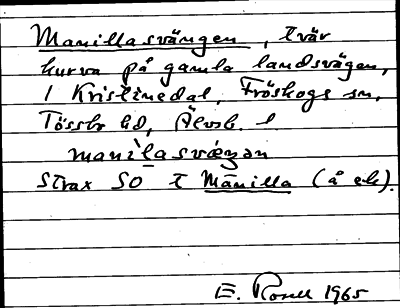 Manillasvängen, tvär
kurva på gamla landsvägen,
i Kristinedal, Fröskogs sn,
Tössbo hd, Älvsb. l
manilasvæŋən
Strax SO t Manilla (å ek).
E. Rosell 1965